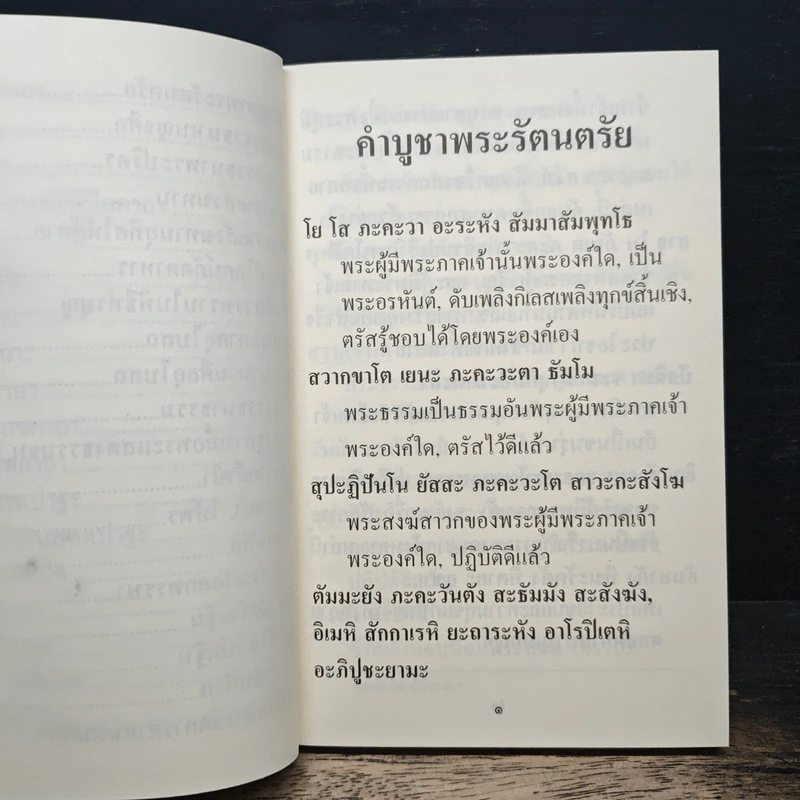 คำบูชาพระรัตนตรัย
โย โส ภะคะวา อะระหัง สัมมาสัมพุทโธ
พระผู้มีพระภาคเจ้านั้นพระองค์ใด, เป็น
พระอรหันต์, ดับเพลิงกิเลสเพลิงทุกข์สิ้นเชิง,
ตรัสรู้ชอบได้โดยพระองค์เอง
สวากขาโต เยนะ ภะคะวะตา ธัมโม
พระธรรมเป็นธรรมอันพระผู้มีพระภาคเจ้า
พระองค์ใด, ตรัสไว้ดีแล้ว
สุปะฏิปันโน ยัสสะ ภะคะวะโต สาวะกะสังโฆ
พระสงฆ์สาวกของพระผู้มีพระภาคเจ้า
พระองค์ใด, ปฏิบัติดีแล้ว
ตัมมะยัง ภะคะวันตัง สะธัมมัง สะสังฆัง,
อิเมหิ สักกาเรหิ ยะถาระหัง อาโรปิเตหิ
อะภิปูชะยามะ
๑